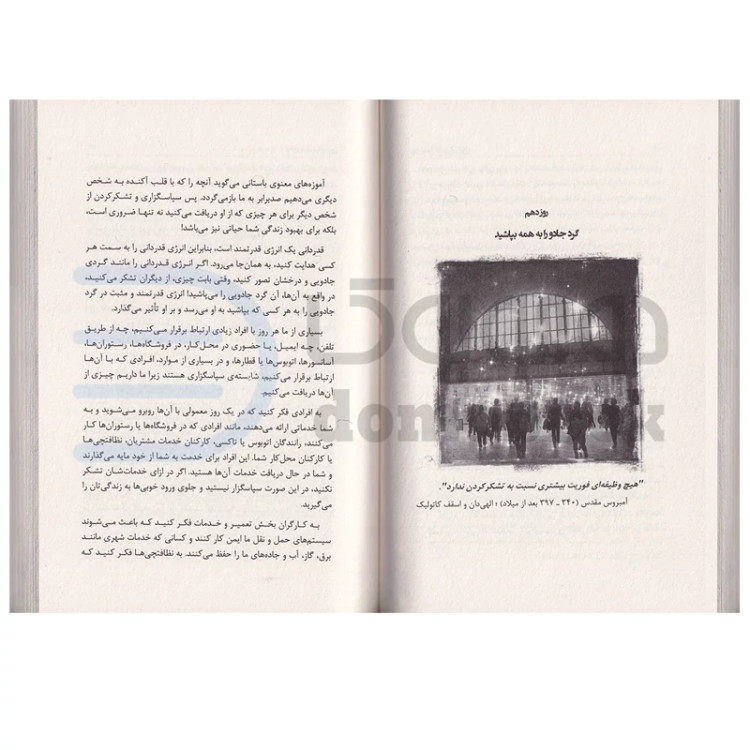 روز دهم
گرد جادو را به همه بپاشید
"هیچ وظیفه‌ای فوریت بیشتری نسبت به تشکر کردن ندارد".
آمبروس مقدس (۳۴۰ ـ ۳۹۷ بعد از میلاد) ؛ الهی‌دان و اسقف کاتولیک
آموزه‌های معنوی باستانی می‌گوید آنچه را که با قلب آکنده به شخص
دیگری می‌دهیم صدبرابر به ما بازمی‌گردد. پس سپاسگزاری و تشکرکردن از
شخص دیگر برای هر چیزی که از او دریافت می‌کنید نه تنها ضروری است،
بلکه برای بهبود زندگی شما حیاتی نیز می‌باشد!
قدردانی یک انرژی قدرتمند است، بنابراین انرژی قدردانی را به سمت هر
کسی هدایت کنید، به همان‌جا می‌رود. اگر انرژی قدردانی را مانند گردی
جادویی و درخشان تصور کنید، وقتی بابت چیزی، از دیگران تشکر می‌کنید،
در واقع به آن‌ها، آن گرد جادویی را می‌پاشید! انرژی قدرتمند و مثبت در گرد
جادویی را به هر کسی که بپاشید به او می‌رسد و بر او تأثیر می‌گذارد.
بسیاری از ما هر روز با افراد زیادی ارتباط برقرار می‌کنیم، چه از طریق
تلفن، چه ایمیل، یا حضوری در محل‌کار، در فروشگاه‌ها، رستوران‌ها،
آسانسورها، اتوبوس‌ها یا قطارها، و در بسیاری از موارد، افرادی که با آن‌ها
ارتباط برقرار می‌کنیم، شایسته‌ی سپاسگزاری هستند زیرا ما داریم چیزی از
آن‌ها دریافت می‌کنیم.
به افرادی فکر کنید که در یک روز معمولی با آن‌ها روبرو می‌شوید و به
شما خدماتی ارائه می‌دهند، مانند افرادی که در فروشگاه‌ها یا رستوران‌ها کار
می‌کنند، رانندگان اتوبوس یا تاکسی، کارکنان خدمات مشتریان، نظافتچی‌ها
یا کارکنان محل‌کار شما. این افراد برای خدمت به شما از خود مایه می‌گذارند
و شما در حال دریافت خدمات آن‌ها هستید. اگر در ازای خدمات‌شان تشکر
نکنید، در این صورت سپاسگزار نیستید و جلوی ورود خوبی‌ها به زندگی‌تان را
می‌گیرید.
به کارگران بخش تعمیر و خدمات فکر کنید که باعث می‌شوند
سیستم‌های حمل و نقل ما ایمن کار کنند و کسانی که خدمات شهری مانند
برق، گاز، آب و جاده‌های ما را حفظ می‌کنند. به نظافتچی‌ها فکر کنید که